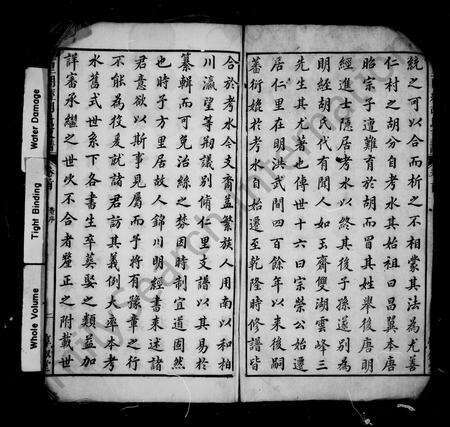 統之可以合而析之不相蒙其法為尤善
仁村之胡分自考水其始祖曰昌翼本唐
昭宗子遭難育於胡而冒其姓舉後唐明
經進士隱居考水以終其後子孫遂別為
明經胡氏代有聞人如玉齋雙湖雲峰三
先生其尤著也傳世十六曰宗榮公始遷
居仁里在明洪武間四百餘年以來後嗣
蕃衍婉於考水自始遷至乾隆時修譜皆
合於考水今支齋蓋繁族人用南以和柏
川瀛望等翔議別脩仁里支譜以其易於
纂輯而可免治絲之棼因時制宜道固然
也時子方里居故人錦川明經書來述諸
君意欲以斯事見屬而予將有孫章之行
不能為役爰就諸君訪其義例大率本考
水舊式世系下各書生卒葬娶之類益加
詳審承繼之世次不合者釐正之附載世
Water Damage
Tight Binding
Whole Volume